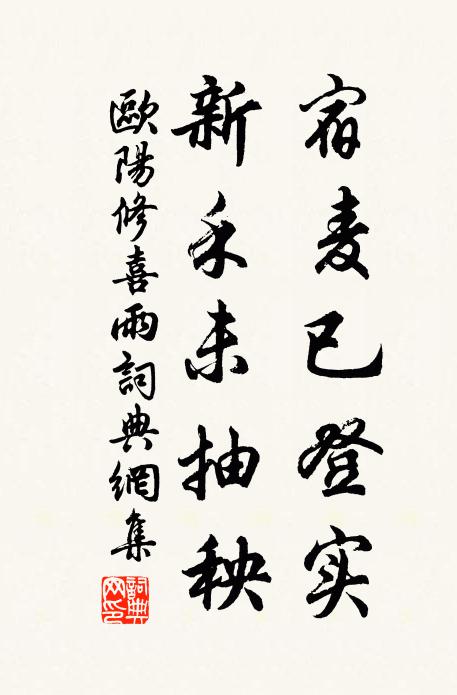 宿麦已登实
新禾未抽秧
歐陽修喜雨詞典網集
詞典网印